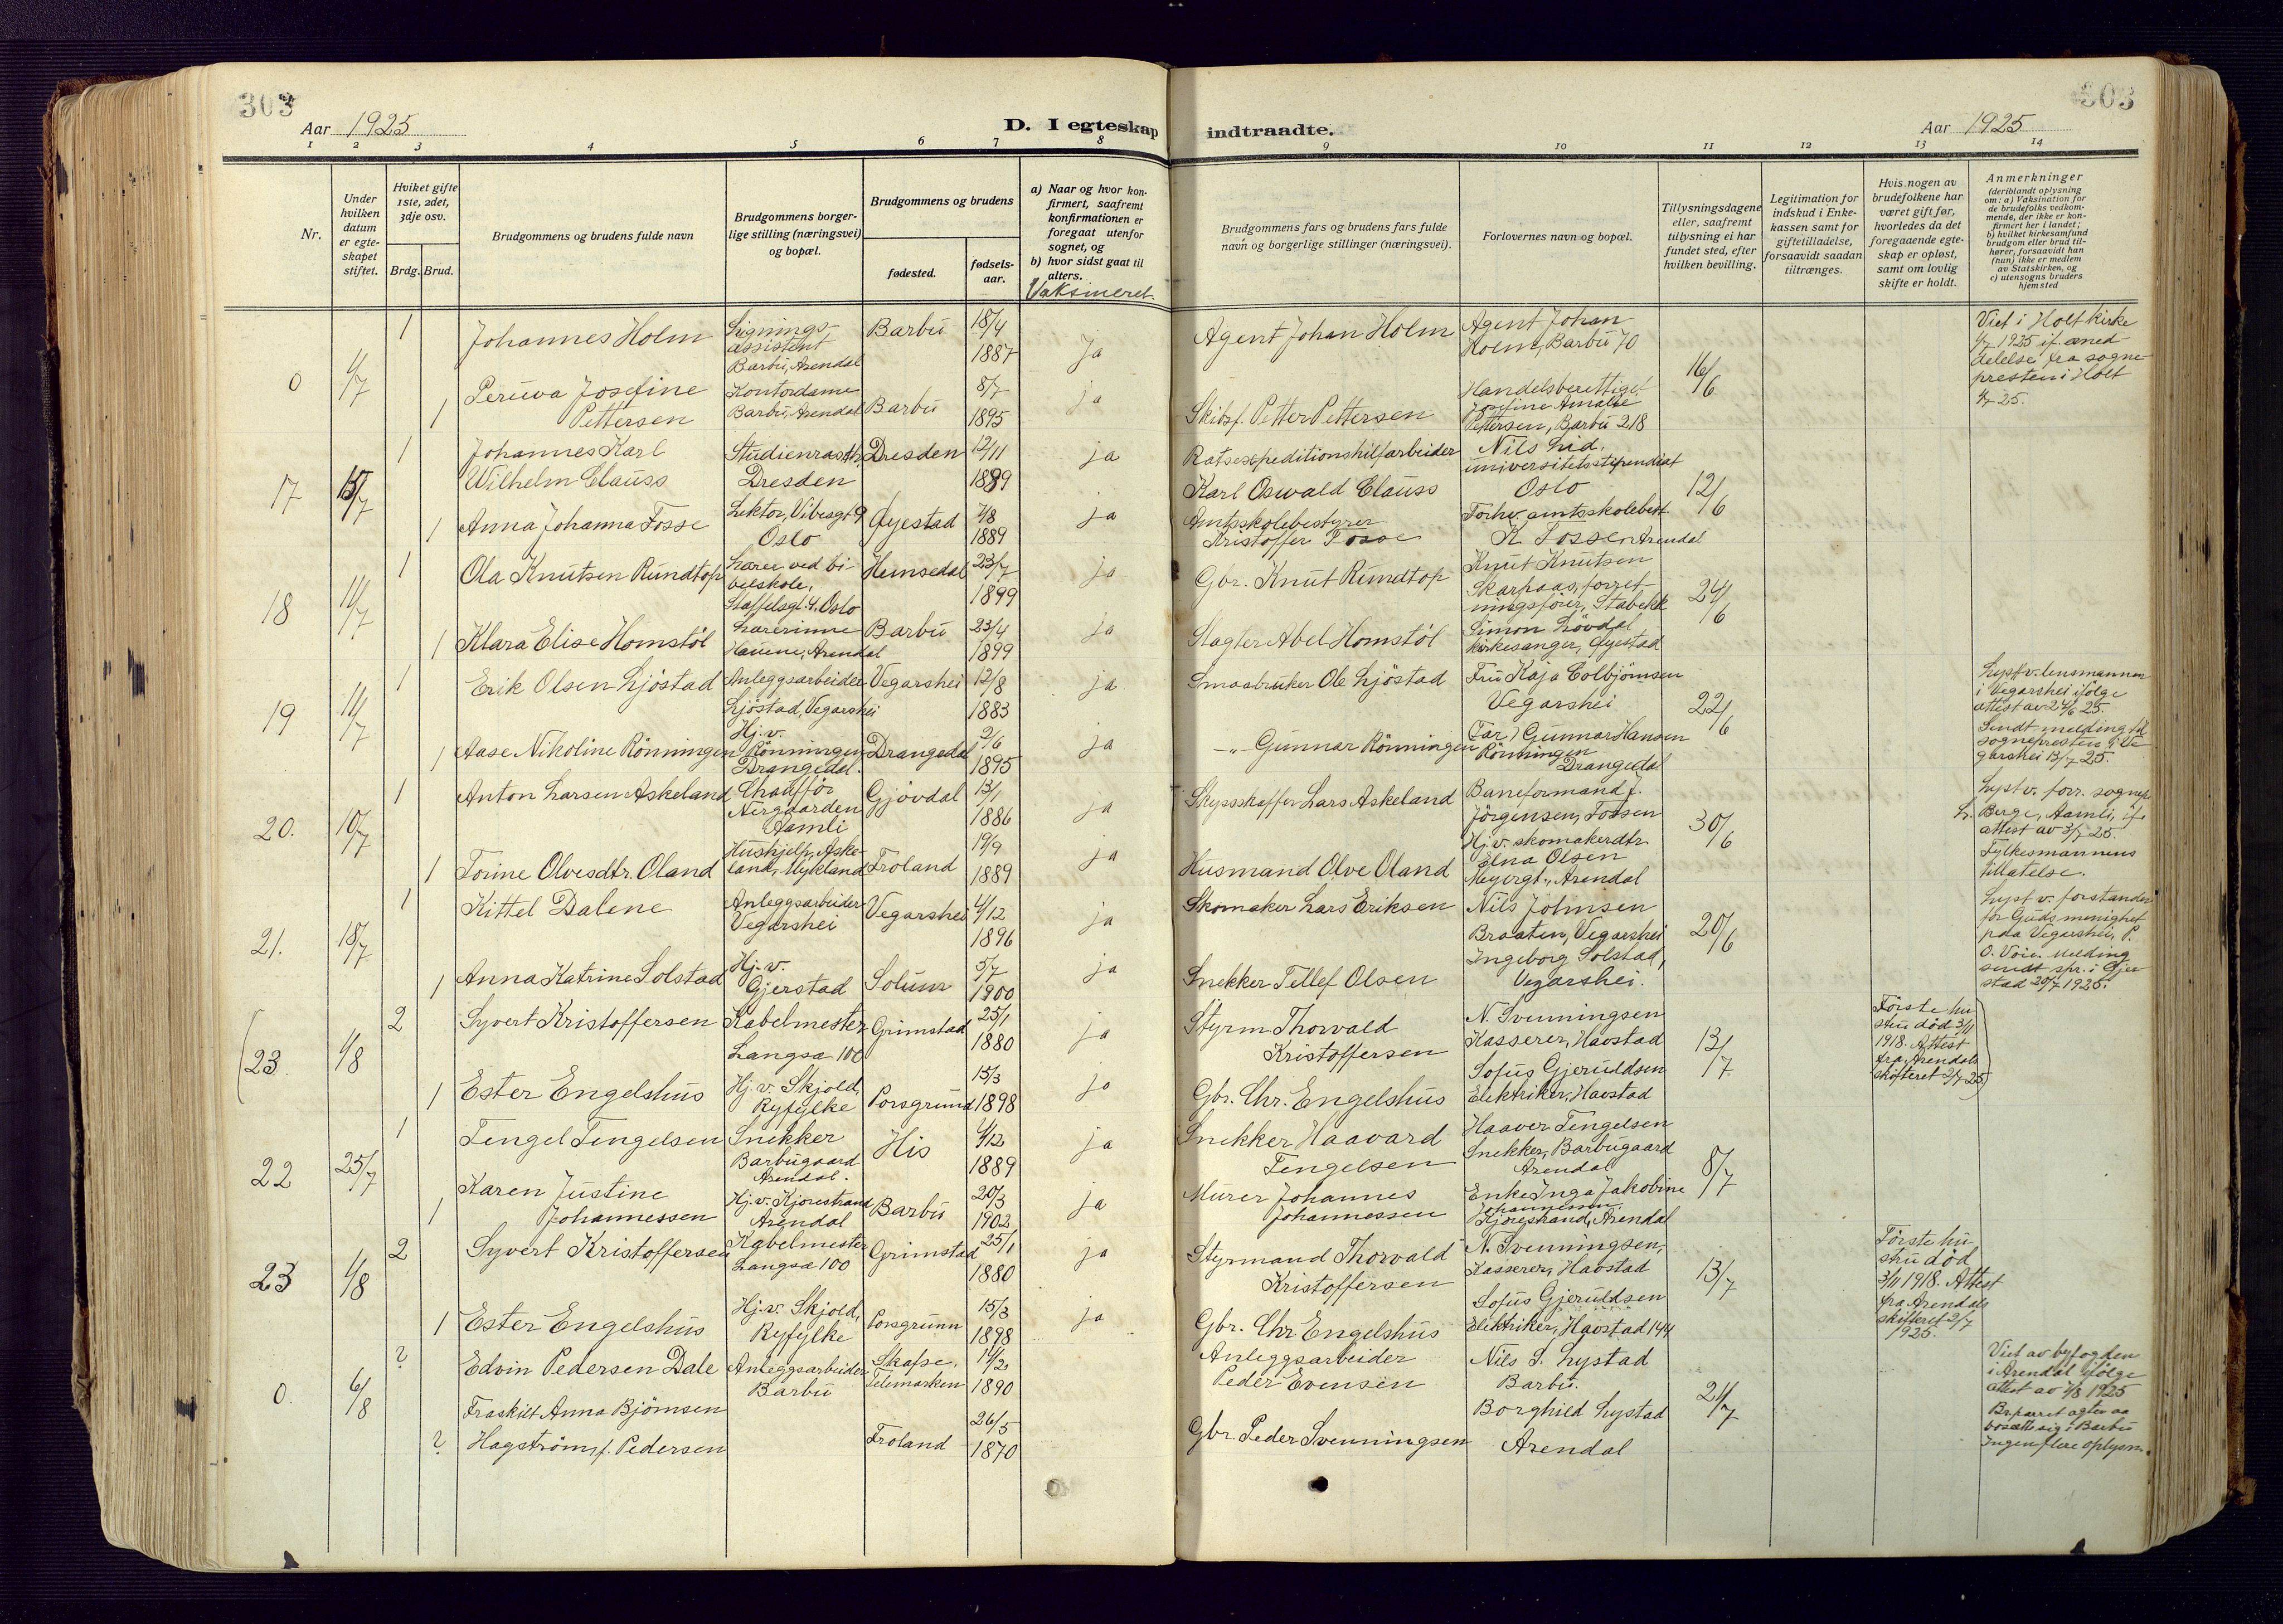 303
Aar 1925
D. I egteskap indtraadte.
Aar 1925
303
1 2 3 4 5 6 7 8 9 10 11 12 13 14
Nr.
Under hvilken datum er egte-skapet stiftet.
Hviket gifte 1ste, 2det, 3dje osv.
Brdg. Brud.
Brudgommens og brudens fulde navn
Brudgommens borger-lige stilling (næringsvei) og bopæl.
Brudgommens og brudens
fødested.
fødsels-aar.
a) Naar og hvor kon-firmert, saafremt konfirmationen er foregaat utenfor sognet, og
b) hvor sidst gaat til alters.
Vaksineret.
Brudgommens fars og brudens fars fulde navn og borgerlige stillinger (næringsvei).
Forlovernes navn og bopæl.
Tillysningsdagene eller, saafremt tillysning ei har fundet sted, efter hvilken bevilling.
Legitimation for indskud i Enke-kassen samt for giftetilladelse, forsaavidt saadan tiltrænges.
Hvis nogen av brudefolkene har været gift før, hvorledes da det foregaaende egte-skap er opløst, samt om lovlig skifte er holdt.
Anmerkninger
(deriblandt oplysning om: a) Vaksination for de brudefolks vedkom-mende, der ikke er kon-firmert her i landet; b) hvilket kirkesamfund brudgom eller brud til-hører, forsaavidt han (hun) ikke er medlem av Statskirken, og c) utensogns bruders hjemsted
0 4/7
1 Johannes Holm Ligningsassistent Barbu, Arendal Barbu 18/4 1887 ja Agent Johan Holm Agent Johan Holm, Barbu 70
16/6
Viet i Holt kirke 4/7 1925 if. meddelelse fra sognepresten i Holt 4/7 25.
1 Peruva Josefine Pettersen Kontordame Barbu, Arendal Barbu 8/7 1895 ja Skibsf. Petter Pettersen Handelsberettiget Josefine Amalie Pettersen, Barbu 218
17 15/7
1 Johannes Karl Wilhelm Clauss Studienrasth, Dresden Dresden 12/11 1889 ja Ratsexpeditionshilfarbeider Karl Oswald Clauss Nils Lid. universitetsstipendiat Oslo
12/6
1 Anna Johanna Fosse Lektor, Vibesgt 9 Oslo Øyestad 7/8 1889 ja Amtsskolebestyrer Kristoffer Fosse Forhv. amtsskolebest. K. Fosse Arendal
18 11/7
1 Ola Knutsen Rundtop Lærer ved bibelskole, Staffelsgt. 4. Oslo Hemsedal 23/7 1899 ja Gbr. Knut Rundtop Knut Knutsen Skarpaas, forretningsfører, Stabekk
24/6
1 Klara Elise Homstøl Lærerinne Hauene, Arendal Barbu 23/4 1899 ja Slagter Abel Homstøl Simon Løvdal kirkesanger, Øyestad
19 11/7
1 Erik Olsen Ljøstad Anleggsarbeider Ljøstad, Vegarshei Vegarshei 12/8 1883 ja Smaabruker Ole Ljøstad Fru Kaja Colbjørnsen Vegarshei
22/6
Lyst v. lensmannen i Vegarshei ifølge attest av 24/6 25. Sendt melding til sognepresten i Vegarshei 13/7 25.
1 Aase Nikoline Rønningen Hj. v. Rønningen, Drangedal. Drangedal 2/6 1895 ja -"- Gunnar Rønningen Far) Gunnar Hansen Rønningen Drangedal
20. 10/7
1 Anton Larsen Askeland Chauffør Nergaarden Aamli Gjøvdal 13/1 1886 ja Skysskaffer Lars Askeland Baneformand J. Jørgensen, Fossen
30/6
Lyst v. forr. sognep. L. Berge, Aamli, if. attest av 3/7 25. Fylkesmannens tillatelse.
1 Torine Olvesdtr. Oland Hushjelp, Askeland, Mykland Froland 19/9 1889 ja Husmand Olve Oland Hj. v. skomakerdtr. Elna Olsen Meyergt., Arendal
21. 18/7
1 Kittel Dalene Anleggsarbeider Vegarshei Vegarshei 4/12 1896 ja Skomaker Lars Eriksen Nils Johnsen Braaten, Vegarshei
20/6
Lyst v. forstander for Guds menighet paa Vegarshei, P. O. Voie. Melding sendt spr. i Gjerstad 20/7 1925.
1 Anna Katrine Solstad Hj. v. Gjerstad Solum 5/7 1900 ja Snekker Tellef Olsen Ingeborg Solstad, Vegarshei.
(23. 1/8
2 Syvert Kristoffersen Kabelmester Langsæ 100 Grimstad 25/1 1880 ja Styrm Thorvald Kristoffersen N. Svenningsen Kasserer, Havstad
13/7
Første hustru død 3/11 1918. Attest fra Arendals skifteret 2/7 25)
1 Ester Engelshus Hj. v. Skjold, Ryfylke Porsgrund 15/3 1898 ja Gbr. Chr. Engelshus Sofus Gjeruldsen Elektriker, Havstad
22 25/7
1 Tengel Tengelsen Snekker Barbugaard Arendal. His 4/12 1889 ja Snekker Haavard Tengelsen Haaver Tengelsen Snekker, Barbugaard Arendal
8/7
1 Karen Justine Johannessen Hj. v. Kjorestrand Arendal Barbu 20/3 1902 ja Murer Johannes Johannessen Enke Inga Jakobine Johannessen. Kjorestrand, Arendal
23 1/8
2 Syvert Kristoffersen Kabelmester Langsæ 100 Grimstad 25/1 1880 ja Styrmand Thorvald Kristoffersen N. Svenningsen, Kasserer, Havstad
13/7
Første hustru død 3/11 1918. Attest fra Arendals skifteret 2/7 1925.
1 Ester Engelshus Hj. v. Skjold, Ryfylke Porsgrunn 15/3 1898 ja Gbr. Chr Engelshus Sofus Gjeruldsen Elektriker, Havstad 144
0. 6/8
? Edvin Pedersen Dale Anleggsarbeider Barbu Skafse, Telemarken 14/2 1890 Anleggsarbeider Peder Evensen Nils S. Lystad Barbu.
21/7
Viet av byfogden i Arendal ifølge attest av 7/8 1925 Brparret agter aa bosætte sig i Barbu Ingen flere oplysn.
? Fraskilt Anna Bjørnsen Hagstrøm, f. Pedersen Froland 26/5 1870 Gbr. Peder Svenningsen Borghild Lystad Arendal